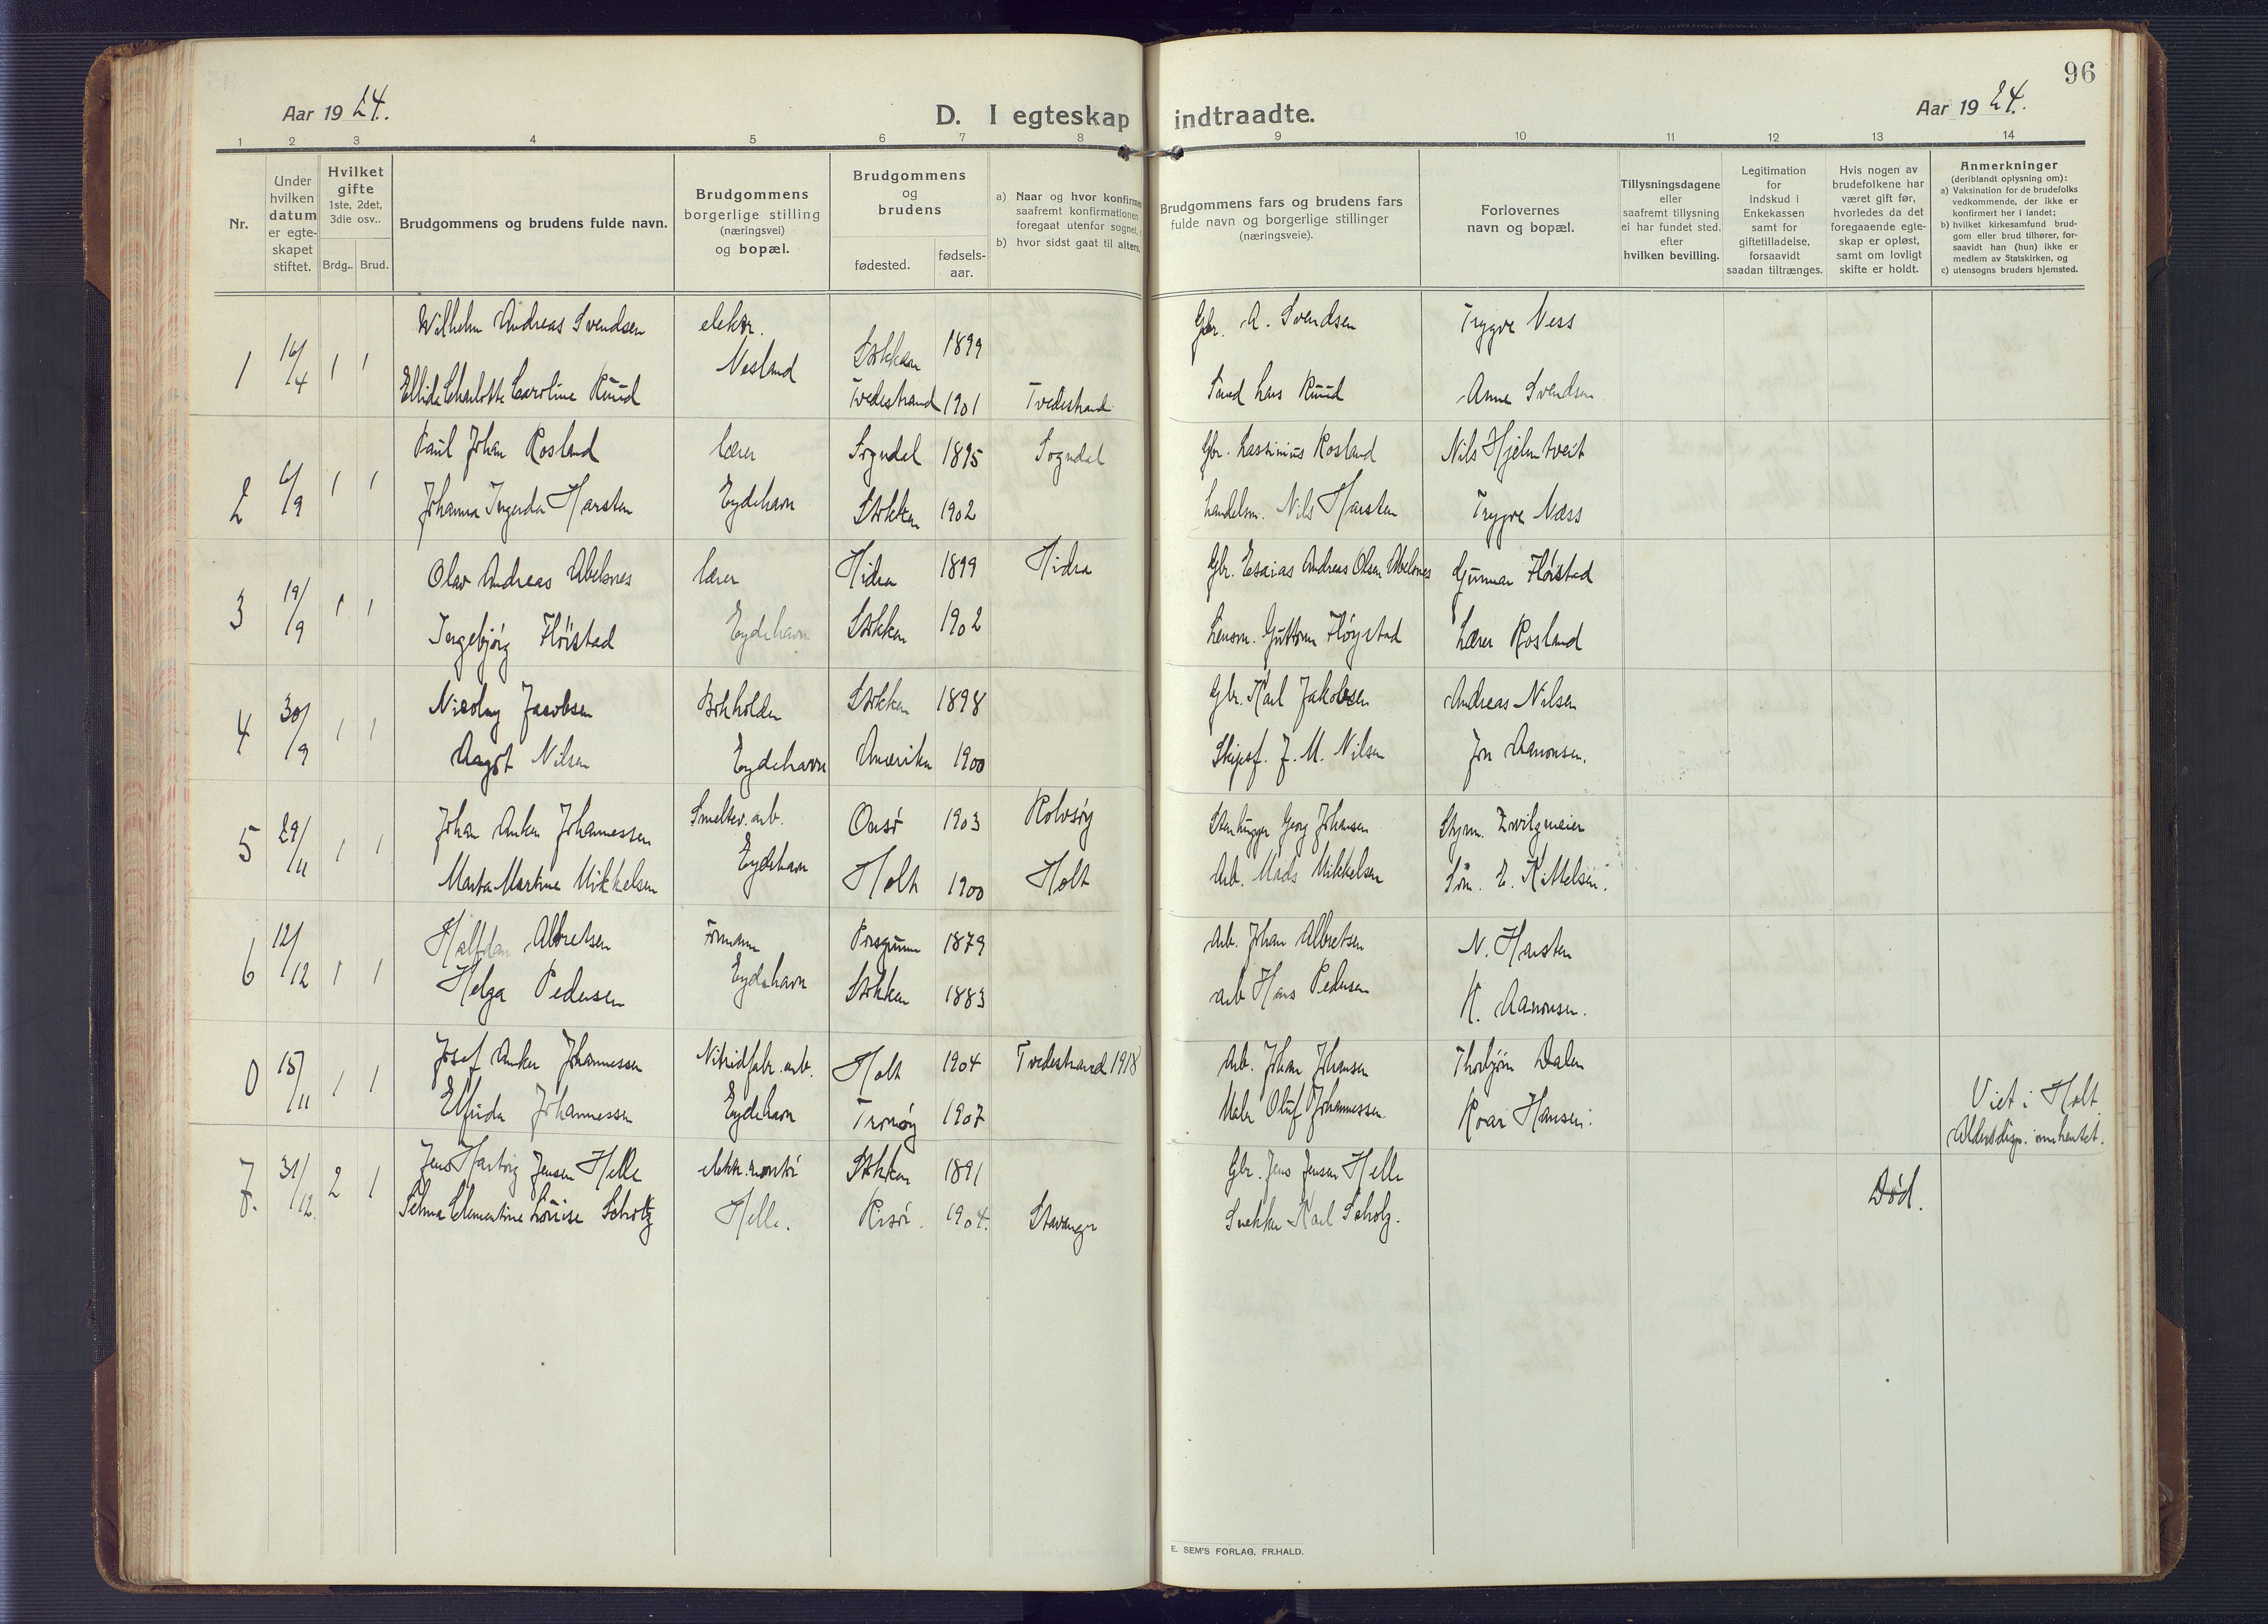 96
Aar 1924.
D. I egteskap indtraadte.
Aar 1924.
1 2 3 4 5 6 7 8 9 10 11 12 13 14
Nr.
Under hvilken datum er egteskapet stiftet.
Hvilket gifte 1ste, 2det, 3die osv..
Brdg.. Brud.
Brudgommens og brudens fulde navn.
Brudgommens borgerlige stilling (næringsvei) og bopæl.
Brudgommens og brudens
fødested.
fødsels-aar.
a) Naar og hvor konfirme
saafremt konfirmationen
foregaat utenfor sognet,
b) hvor sidst gaat til alters.
Brudgommens fars og brudens fars fulde navn og borgerlige stillinger (næringsveie).
Forlovernes navn og bopæl.
Tillysningsdagene eller saafremt tillysning ei har fundet sted. efter hvilken bevilling.
Legitimation for indskud i Enkekassen samt for giftetilladelse, forsaavidt saadan tiltrænges.
Hvis nogen av brudefolkene har været gift før, hvorledes da det foregaaende egteskap er opløst, samt om lovligt skifte er holdt.
Anmerkninger
(deriblandt oplysning om):
a) Vaksination for de brudefolks vedkommende, der ikke er konfirmert her i landet;
b) hvilket kirkesamfund brudgom eller brud tilhører, forsaavidt han (hun) ikke er medlem av Statskirken, og
c) utensogns bruders hjemsted.
1 16/4 1 1 Wilhelm Andreas Svendsen elektr. Nesland Stokken 1899 Gbr. A. Svendsen Trygve Ness
Ellida Charlotte Caroline Ruud Tvedestrand 1901 Tvedestrand Lars Ruud Anne Svendsen
2 6/9 1 1 Paul Johan Rosland lærer Sogndal 1895 Sogndal Gbr. Lassinius Rosland Nils Hjelmtveit
Johanna Ingerda Harsten Eydehavn Stokken 1902 handelsm. Nils Harsten Trygve Næss
3 19/9 1 1 Olav Andreas Abelsnes lærer Hidra 1899 Hidra Gbr. Esaias Andreas Olsen Abelsnes Gunnar Fløistad
Ingebjørg Fløistad Eydehavn Stokken 1902 Lensm. Guttorm Fløystad Lærer Rosland
4 30/9 1 1 Nicolay Jacobsen Bokholder Stokken 1898 Gbr. Karl Jakobsen Andreas Nilsen
Aagot Nilsen Eydehavn Amerika 1900 Skipsf. J. M. Nilsen Jon Aanonsen.
5 29/11 1 1 Johan Anker Johannessen Smeltev. arb. Onsø 1903 Rolvsøy Stenhugger Georg Johansen Styrm. Zwilgmeier
Marta Martine Mikkelsen Eydehavn Holt 1900 Holt Arb. Mads Mikkelsen Søm. E. Kittelsen.
6 12/12 1 1 Halfdan Albretsen Formann Porsgrunn 1879 Arb. Johan Albretsen N. Harsten
Helga Pedersen Eydehavn Stokken 1883 arb Hans Pedersen K. Aanonsen.
0 15/11 1 1 Josef Anker Johannessen Nitridfabr. arb. Holt 1904 Tvedestrand 1918 Arb. Johan Johansen Thorbjørn Dalen
Elfrida Johannessen Eydehavn Tromøy 1907 Maler Oluf Johannessen. Roar Hansen. Viet i Holt
Aldersdisp. innhentet.
7. 31/12 2 1 Jens Hartvig Jensen Helle elektr. montør Stokken 1891 Gbr. Jens Jensen Helle
Selma Clementine Louise Scholtz Helle. Risør. 1904. Stavanger Snekker Karl Scholz. Død.
E. SEM'S FORLAG, FR.HALD.